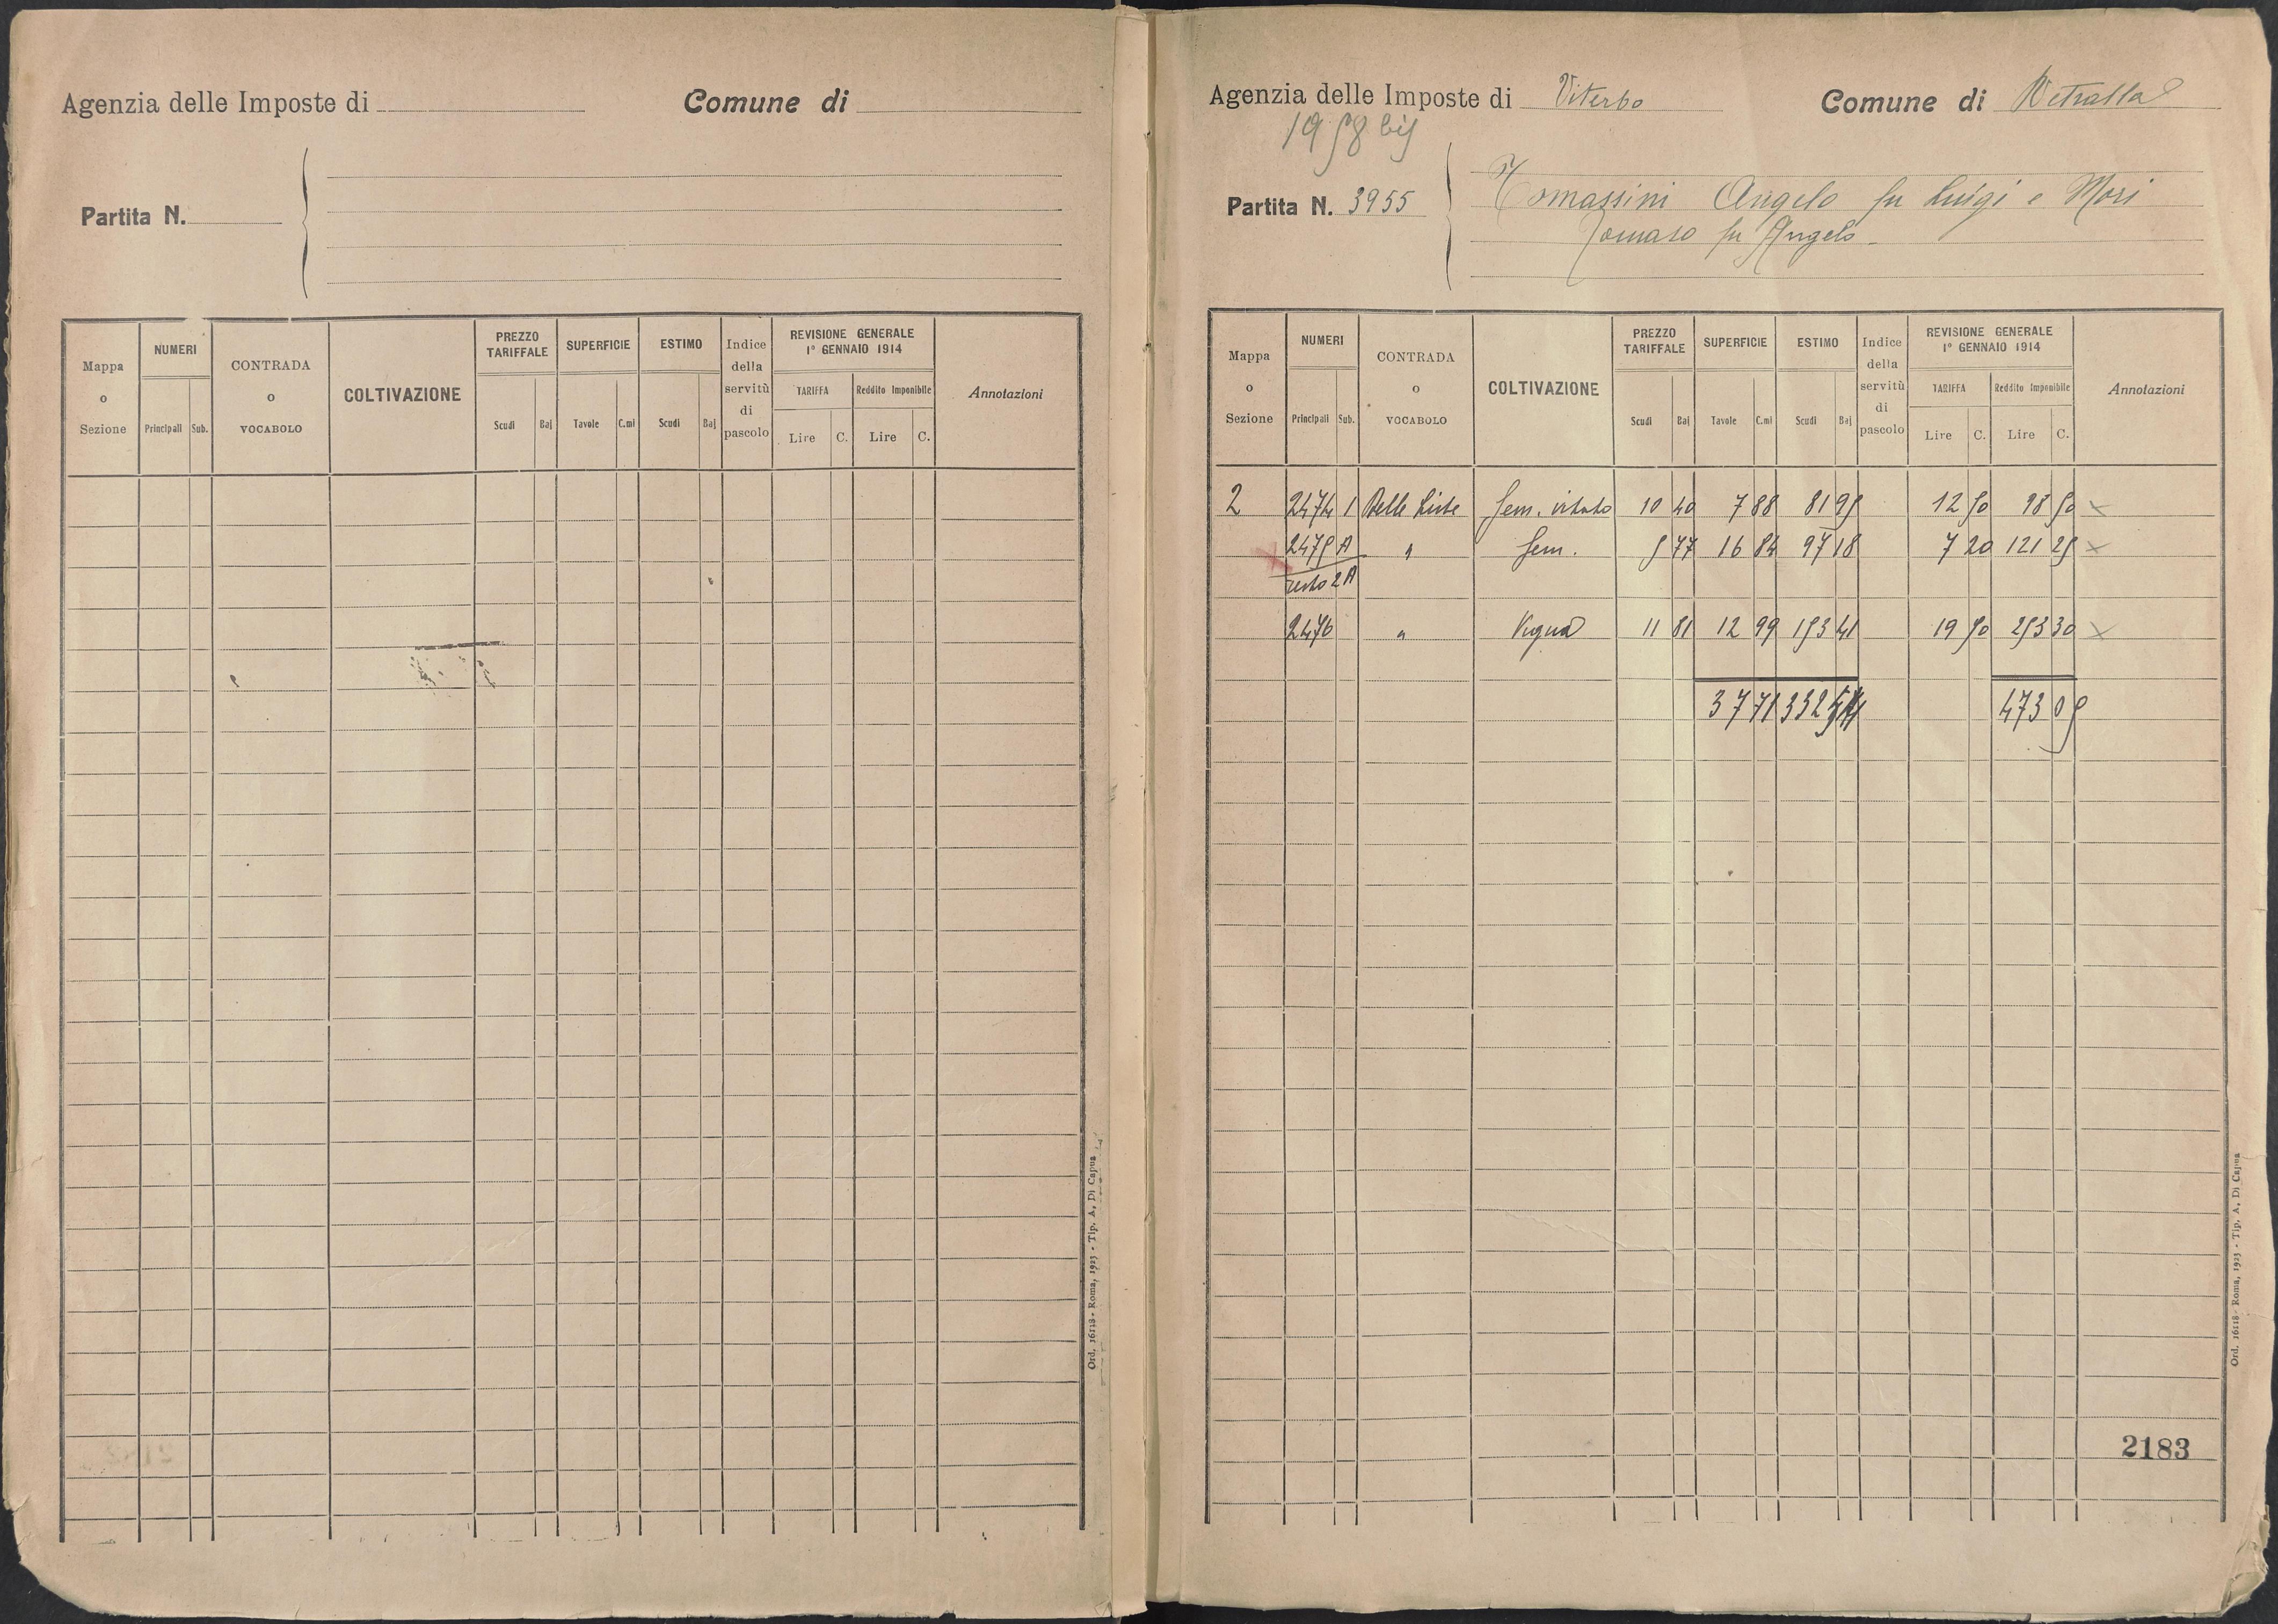 Agenzia delle Imposte di
Comune di
Partita N.
Mappa o Sezione
NUMERI
Principali Sub.
CONTRADA o VOCABOLO
COLTIVAZIONE
PREZZO TARIFFALE
Scudi Baj
SUPERFICIE
Tavole C.mi
ESTIMO
Scudi Baj
Indice della servitù di pascolo
REVISIONE GENERALE
1° GENNAIO 1914
TARIFFA
Lire C.
Reddito Imponibile
Lire C.
Annotazioni
Ord. 16118 - Roma, 1923 - Tip. A. Di Capua
Agenzia delle Imposte di Viterbo
Comune di Vetralla
1958 bis
Partita N. 3955
Tomassini Angelo fu Luigi e Mori
Tomaso fu Angelo
Mappa o Sezione
NUMERI
Principali Sub.
CONTRADA o VOCABOLO
COLTIVAZIONE
PREZZO TARIFFALE
Scudi Baj
SUPERFICIE
Tavole C.mi
ESTIMO
Scudi Baj
Indice della servitù di pascolo
REVISIONE GENERALE
1° GENNAIO 1914
TARIFFA
Lire C.
Reddito Imponibile
Lire C.
Annotazioni
2 2474 1 Delle Sem. vitato 10 40 7 88 81 95 12 50 98 50 ×
× 2475 A " Sem. 5 77 16 84 97 18 7 20 121 25 ×
resto 2 A
2476 " Vigna 11 81 12 99 153 41 19 50 253 30 ×
37 71 332 54 473 05
2183
Ord. 16118 - Roma, 1923 - Tip. A. Di Capua